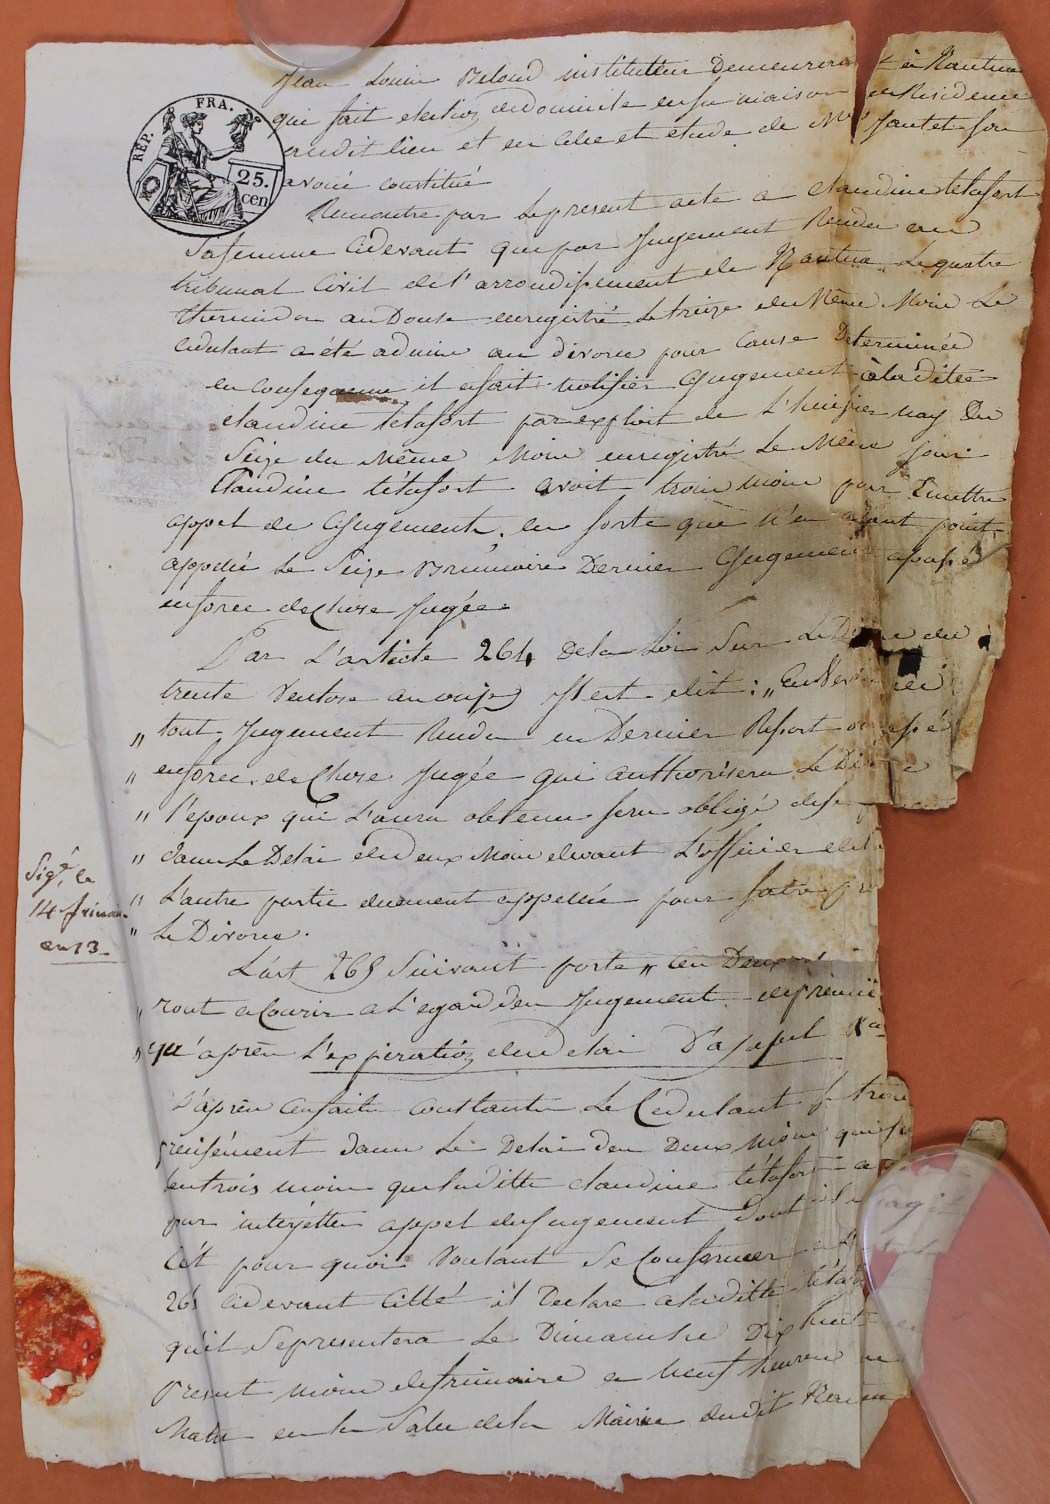 Jean Louis Beloud instituteur Demeurant à Nantua
qui fait election de domicile en sa maison en Residence
audit lieu et en celle et etude de Mre Jantet son
avoué constitué
REP. FRA.
25. cen
Remontre par le present acte a claudine tétafort
Sa femme cidevant que par jugement Rendu au
tribunal Civil de l'arrondissement de Nantua le quatre
thermidor an Douse enregistré le treize du Même Mois Le
cedulant a été admis au divorce pour Cause Determinée
en consequence il a fait notifier ce jugement à la ditte
claudine tétafort par exploit de L'huissier nay Du
Seize du Même Mois enregistré le Même jour
Claudine tétafort avoit trois mois pour Emettre
appel de ce jugement, en sorte que N'en ayant point
appellé le Seize Brumaire Dernier ce jugement a passé
en force de Chose jugée
Par L'article 264 de la Loi Sur le D du
trente Ventose an onze Il est dit : „ En
„ tout jugement Rendu en Dernier Resort ou passé
„ en force de Chose jugée qui authorisera Le Di
„ l'époux qui L'aura obtenu sera obligé de se
„ dans Le Delai de deux Mois devant L'officier
„ L'autre partie duement appellée pour faire
„ Le Divorce.
Sigé. le
14 frimaire
an 13
L'art 265 Suivant porte „ Ces Deux
„ ront a Courir a L'egard des jugements de premie
„ qu' après L'expiration du delai D'appel &a
D'après ces faits constants Le Cedulant se trouve
precisément dans Le Delai des Deux Mois qui
les trois mois que la ditte claudine tétafort a
pour interjetter appel du jugement Dont
C'ét pour quoi Voulant Se Conformer
265 cidevant Citté il Declare a la ditte téta
qu'il se presentera Le Dimanche Dix huit
Present mois de frimaire a neuf heures
Matin en la Salle de la Mairie dudit